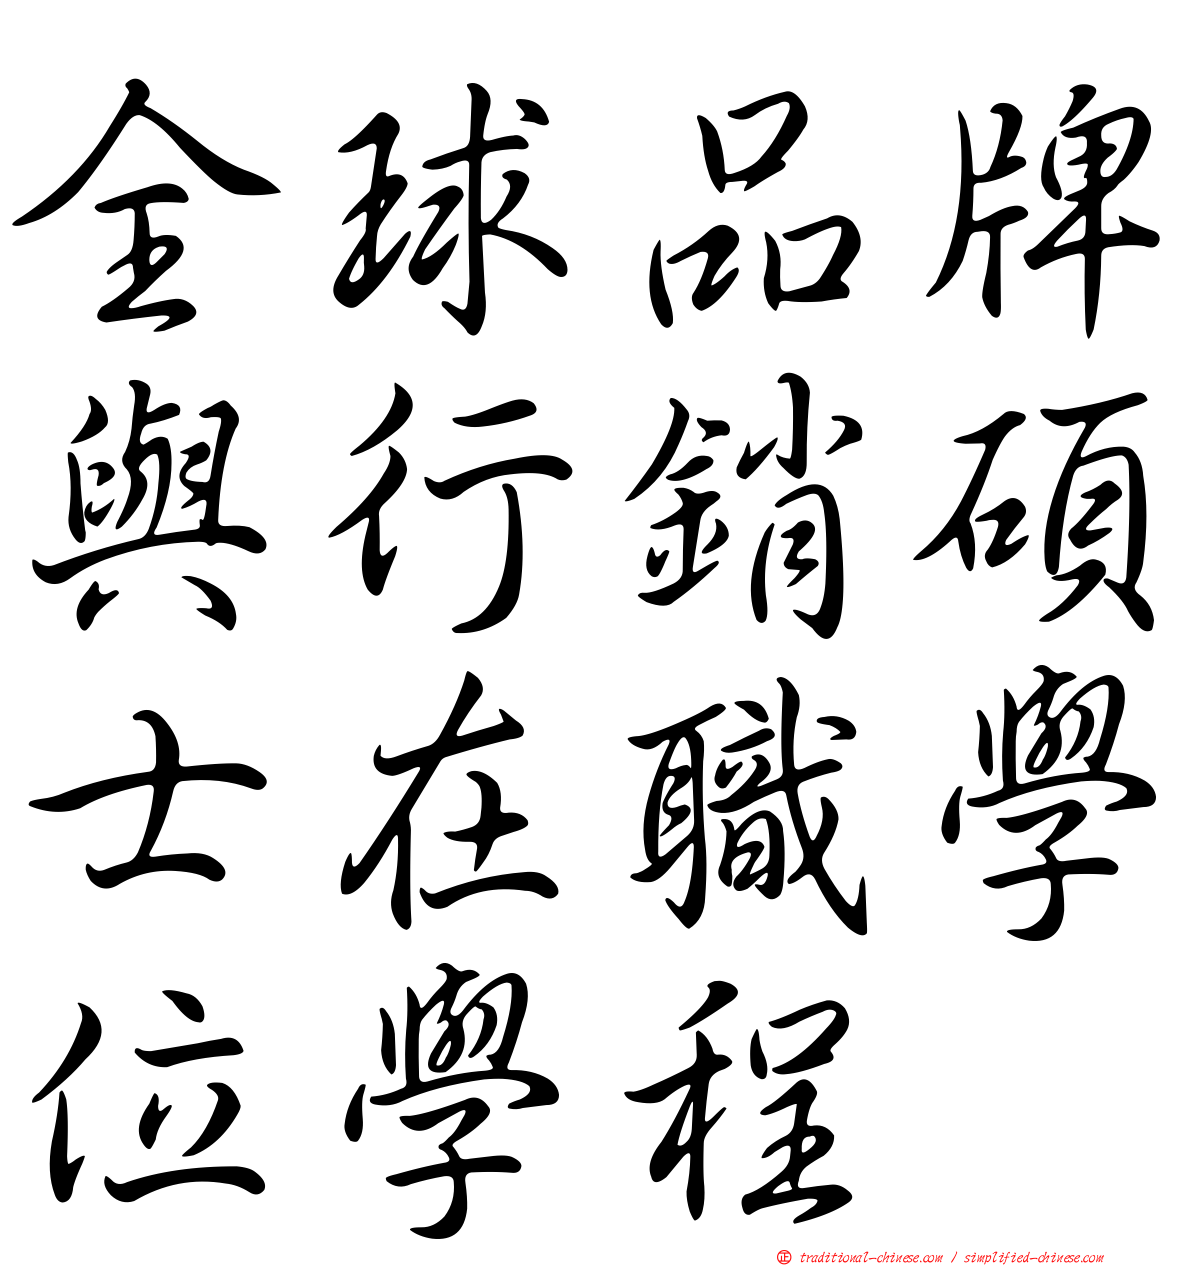 全球品牌
與行銷碩
士在職學
位學程
正 traditional-chinese.com / simplified-chinese.com